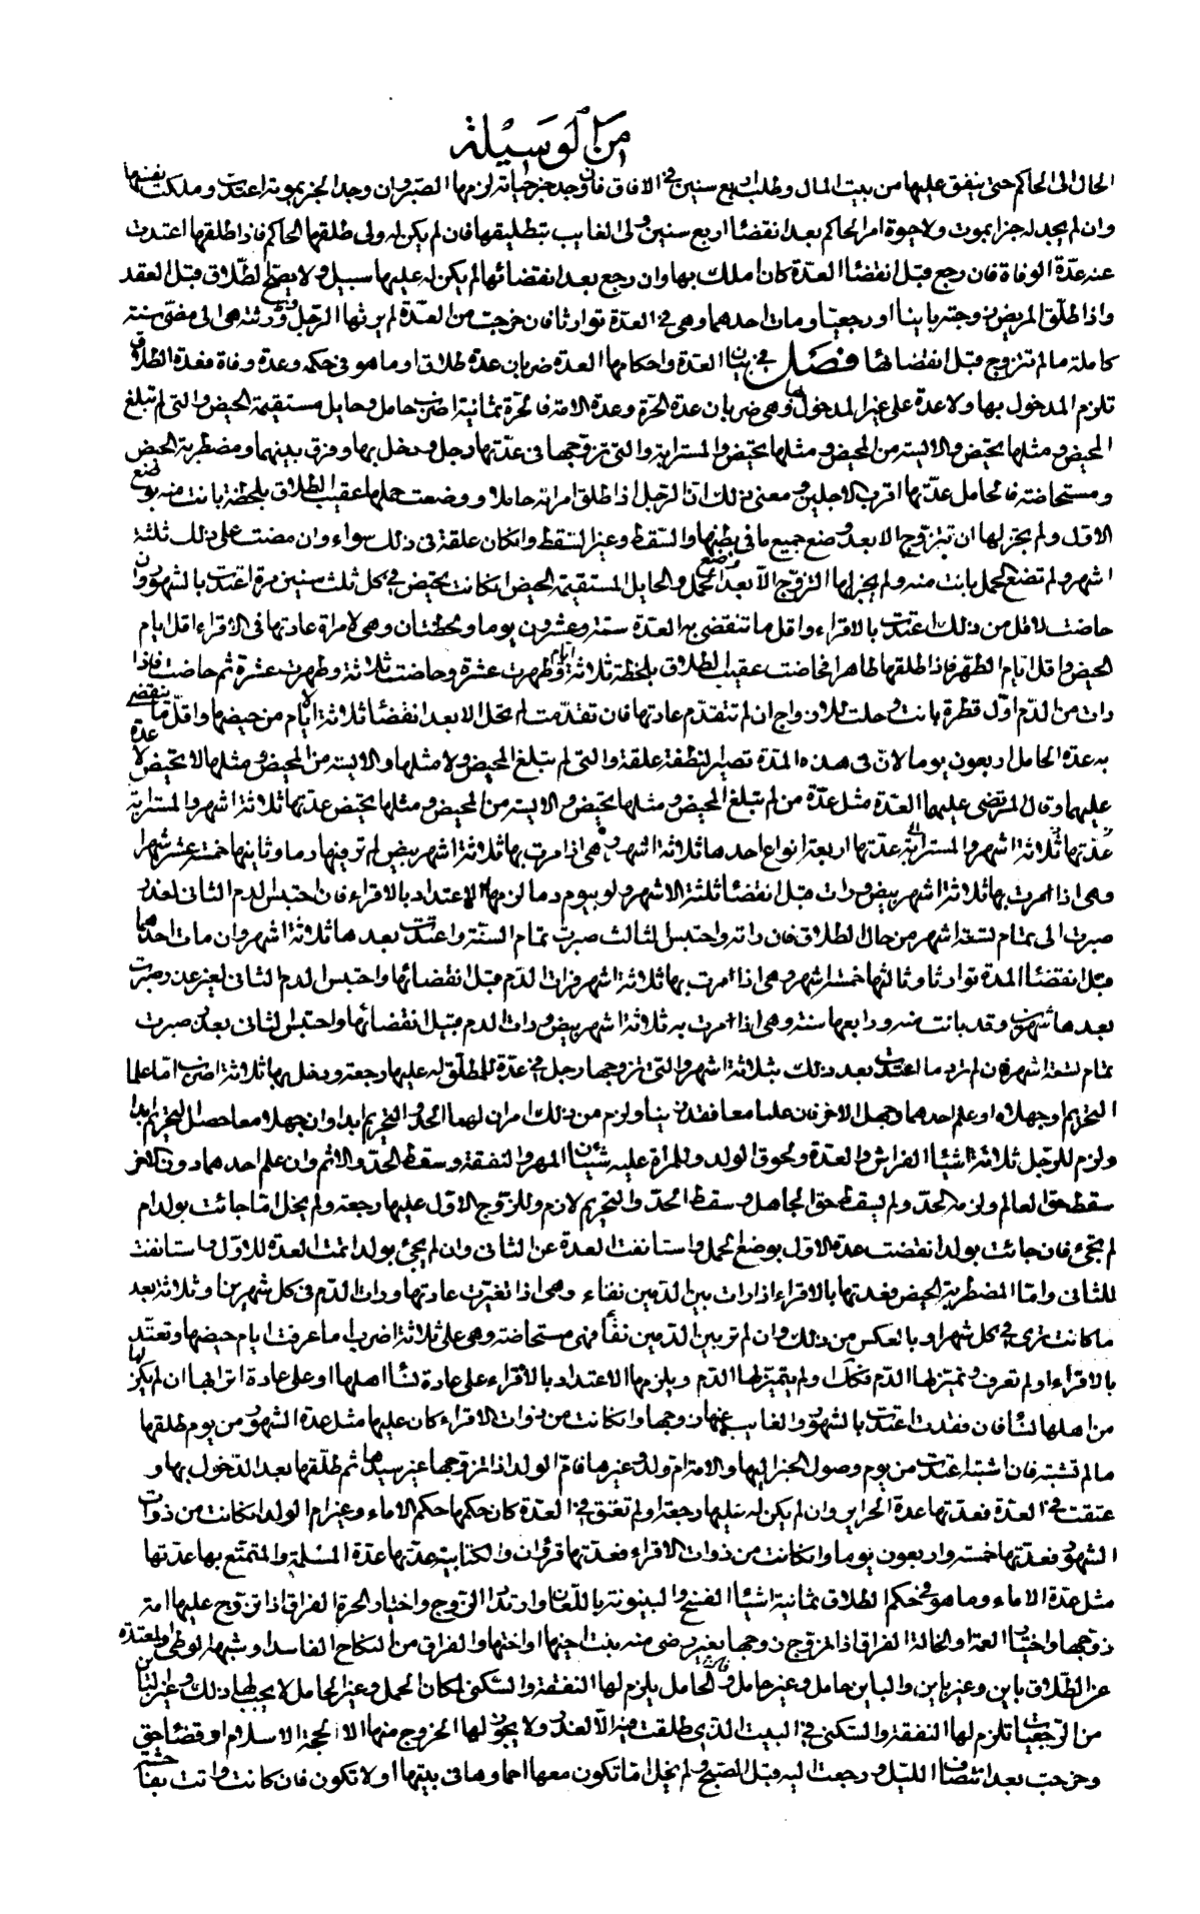 من الوسيلة
الحال الى الحاكم حتى ينفق عليها من بيت المال وطلب اربع سنين في الافاق فان وجد خبر حياته لزمها الصبر وان وجد الخبر بموته اعتدت وملكت نفسها
وان لم يجد له خبرا بموت ولا حيوة امر الحاكم بعد انقضاء اربع سنين ولى الغايب بتطليقها فان لم يكن له ولى طلقها الحاكم فاذا طلقها اعتدت
عنه عدة الوفاة فان رجع قبل انقضاء العدة كان املك بها وان رجع بعد انقضائها لم يكن له عليها سبيل ولا يصح الطلاق قبل العقد
واذا طلق المريض زوجته باينا او رجعيا ومات احدهما وهى في العدة توارثا فان خرجت من العدة لم يرثها الرجل وورثته هى الى مضى سنة
كاملة ما لم تتزوج قبل انقضائها فصل في بيان العدة واحكامها العدة ضربان عدة طلاق او ما هو في حكمه وعدة وفاة فعدة الطلاق
تلزم المدخول بها ولا عدة على غير المدخول بها وهى ضربان عدة الحرة وعدة الامة فالحرة ثمانية اضرب حامل وحايل مستقيمة الحيض والتى لم تبلغ
المحيض ومثلها تحيض والايسة من المحيض ومثلها تحيض والمسترابة والتى تزوجها في عدتها رجل ودخل بها وفرق بينهما ومضطربة الحيض
ومستحاضة فالحامل عدتها اقرب الاجلين ومعنى ذلك ان الرجل اذا طلق امراته حاملا ووضعت حملها عقيب الطلاق بلحظة بانت منه بوضع
الاول ولم يجز لها ان تتزوج الا بعد وضع جميع ما في بطنها والسقط وغير السقط وان كان علقة في ذلك سواء وان مضت على ذلك ثلثة
اشهر ولم تضع الحمل بانت منه ولم يجز لها التزوج الا بعد وضع الحمل والحايل المستقيمة الحيض ان كانت تحيض في كل ثلث سنين مرة اعتدت بالشهور وان
حاضت لاقل من ذلك اعتدت بالاقراء واقل ما تنقضى به العدة ستة وعشرون يوما ولحظتان وهى لامراة عادتها في الاقراء اقل ايام
الحيض واقل ايام الطهر فاذا طلقها طاهرا فحاضت عقيب الطلاق بلحظة ثلاثة ايام وطهرت عشرة وحاضت ثلاثة وطهرت عشرة ثم حاضت فاذا
رات من الدم اول قطرة بانت وحلت للازواج ان لم تتقدم عادتها فان تقدمت لم تحل الا بعد انقضاء ثلاثة ايام من حيضها واقل ما ينقضى
به عدة الحامل اربعون يوما لان في هذه المدة تصير النطفة علقة والتى لم تبلغ المحيض ولا مثلها والايسة من المحيض ومثلها لا تحيض لا عدة
عليهما وقال المرتضى عليهما العدة مثل عدة من لم تبلغ المحيض ومثلها تحيض والايسة من المحيض ومثلها تحيض عدتها ثلاثة اشهر والمسترابة
عدتها ثلاثة اشهر والمسترابة عدتها اربعة انواع احدها ثلاثة اشهر وهى اذا مرت بها ثلاثة اشهر بيض لم تر فيها دما وثانيها خمسة عشر شهرا
وهى اذا مرت بها ثلاثة اشهر بيض ورات قبل انقضاء ثلثة الاشهر ولو بيوم دما لزمها الاعتداد بالاقراء فان احتبس الدم الثانى لعذر
صبرت الى تمام تسعة اشهر من حال الطلاق فان راته واحتبس الثالث صبرت تمام السنة واعتدت بعدها ثلاثة اشهر وان مات احدهما
قبل انقضاء المدة توارثا وثالثها خمسة اشهر وهى اذا مرت بها ثلاثة اشهر فرات الدم قبل انقضائها واحتبس الدم الثانى لغير عذر وصبرت
بعدها شهرين وقد بانت منه ورابعها سنة وهى اذا مرت به ثلاثة اشهر بيض ورات الدم قبل انقضائها واحتبس الثانى بعذر صبرت
تمام تسعة اشهر فان لم تر دما اعتدت بعد ذلك بثلاثة اشهر والتى تزوجها رجل في عدة للمطلق له عليها رجعة ودخل بها ثلاثة اضرب اما علما
التحريم او جهلاه او علم احدهما وجهل الاخر فان علما معا فقد زنيا ولزم من ذلك امران لهما الحد والتحريم ابدا وان جهلا معا حصل التحريم ابدا
ولزم للرجل ثلاثة اشياء الفراش والعدة ولحوق الولد وللمراة عليه شيئان المهر والنفقة وسقط الحد والاثم وان علم احدهما دون الاخر
سقط حق العالم ولزمه الحد ولم يسقط حق الجاهل وسقط الحد والتحريم لازم وللزوج الاول عليها رجعة ولم يخل اما جائت بولد ام
لم تجئ فان جائت بولد انقضت عدة الاول بوضع الحمل واستانفت العدة عن الثانى وان لم تجئ بولد اتمت العدة للاول واستانفت
للثانى واما المضطربة الحيض فعدتها بالاقراء اذا رات بين الدمين نقاء وهى اذا تغيرت عادتها ورات الدم في كل شهرين او ثلاثة بعد
ما كانت ترى في كل شهر او بالعكس من ذلك وان لم تر بين الدمين نقاء فهى مستحاضة وهى على ثلاثة اضرب اما عرفت ايام حيضها وتعتد
بالاقراء او لم تعرف وتميز لها الدم فكذلك ولم يتميز لها الدم ويلزمها الاعتداد بالاقراء على عادة نساء اهلها او على عادة اترابها ان لم يكن لها
من اهلها نساء فان فقدت اعتدت بالشهور والغايب عنها زوجها وان كانت من ذوات الاقراء كان عليها مثل عدة الشهور من يوم طلقها
ما لم تشتبه فان اشتبه اعتدت من يوم وصول الخبر اليها والامة ام ولد وغيرها فام الولد اذا تزوجها غير سيدها ثم طلقها بعد الدخول بها و
عتقت في العدة فعدتها عدة الحراير وان لم يكن له عليها رجعة او لم تعتق في العدة كان حكمها حكم الاماء وغير ام الولد ان كانت من ذوات
الشهور فعدتها خمسة واربعون يوما وان كانت من ذوات الاقراء فعدتها قرؤان والكتابية عدتها عدة المسلمة والمتمتع بها عدتها
مثل عدة الاماء وما هو في حكم الطلاق ثمانية اشياء الفسخ والبينونة باللعان وارتداد الزوج واختيار الحرة الفراق اذا تزوج عليها امة
زوجها واختيار العمة والخالة الفراق اذا تزوج زوجها بغير رضى منه بنت اخيها او اختها والفراق من النكاح الفاسد او شبهة الوطى والمعتدة
عن الطلاق باين وغير باين والباين حامل وغير حامل فالحامل يلزم لها النفقة والسكنى لمكان الحمل وغير الحامل لا يجب لها ذلك وغير الباين
من الرجعيات تلزم لها النفقة والسكنى في البيت الذى طلقت فيه الا لعذر ولا يجوز لها الخروج منها الا لحجة الاسلام او قضاء حق
وخرجت بعد انتصاف الليل ورجعت اليه قبل الصبح ولم يخل اما تكون معها احماؤها في بيتها او لا تكون فان كانت واتت بفاحشة